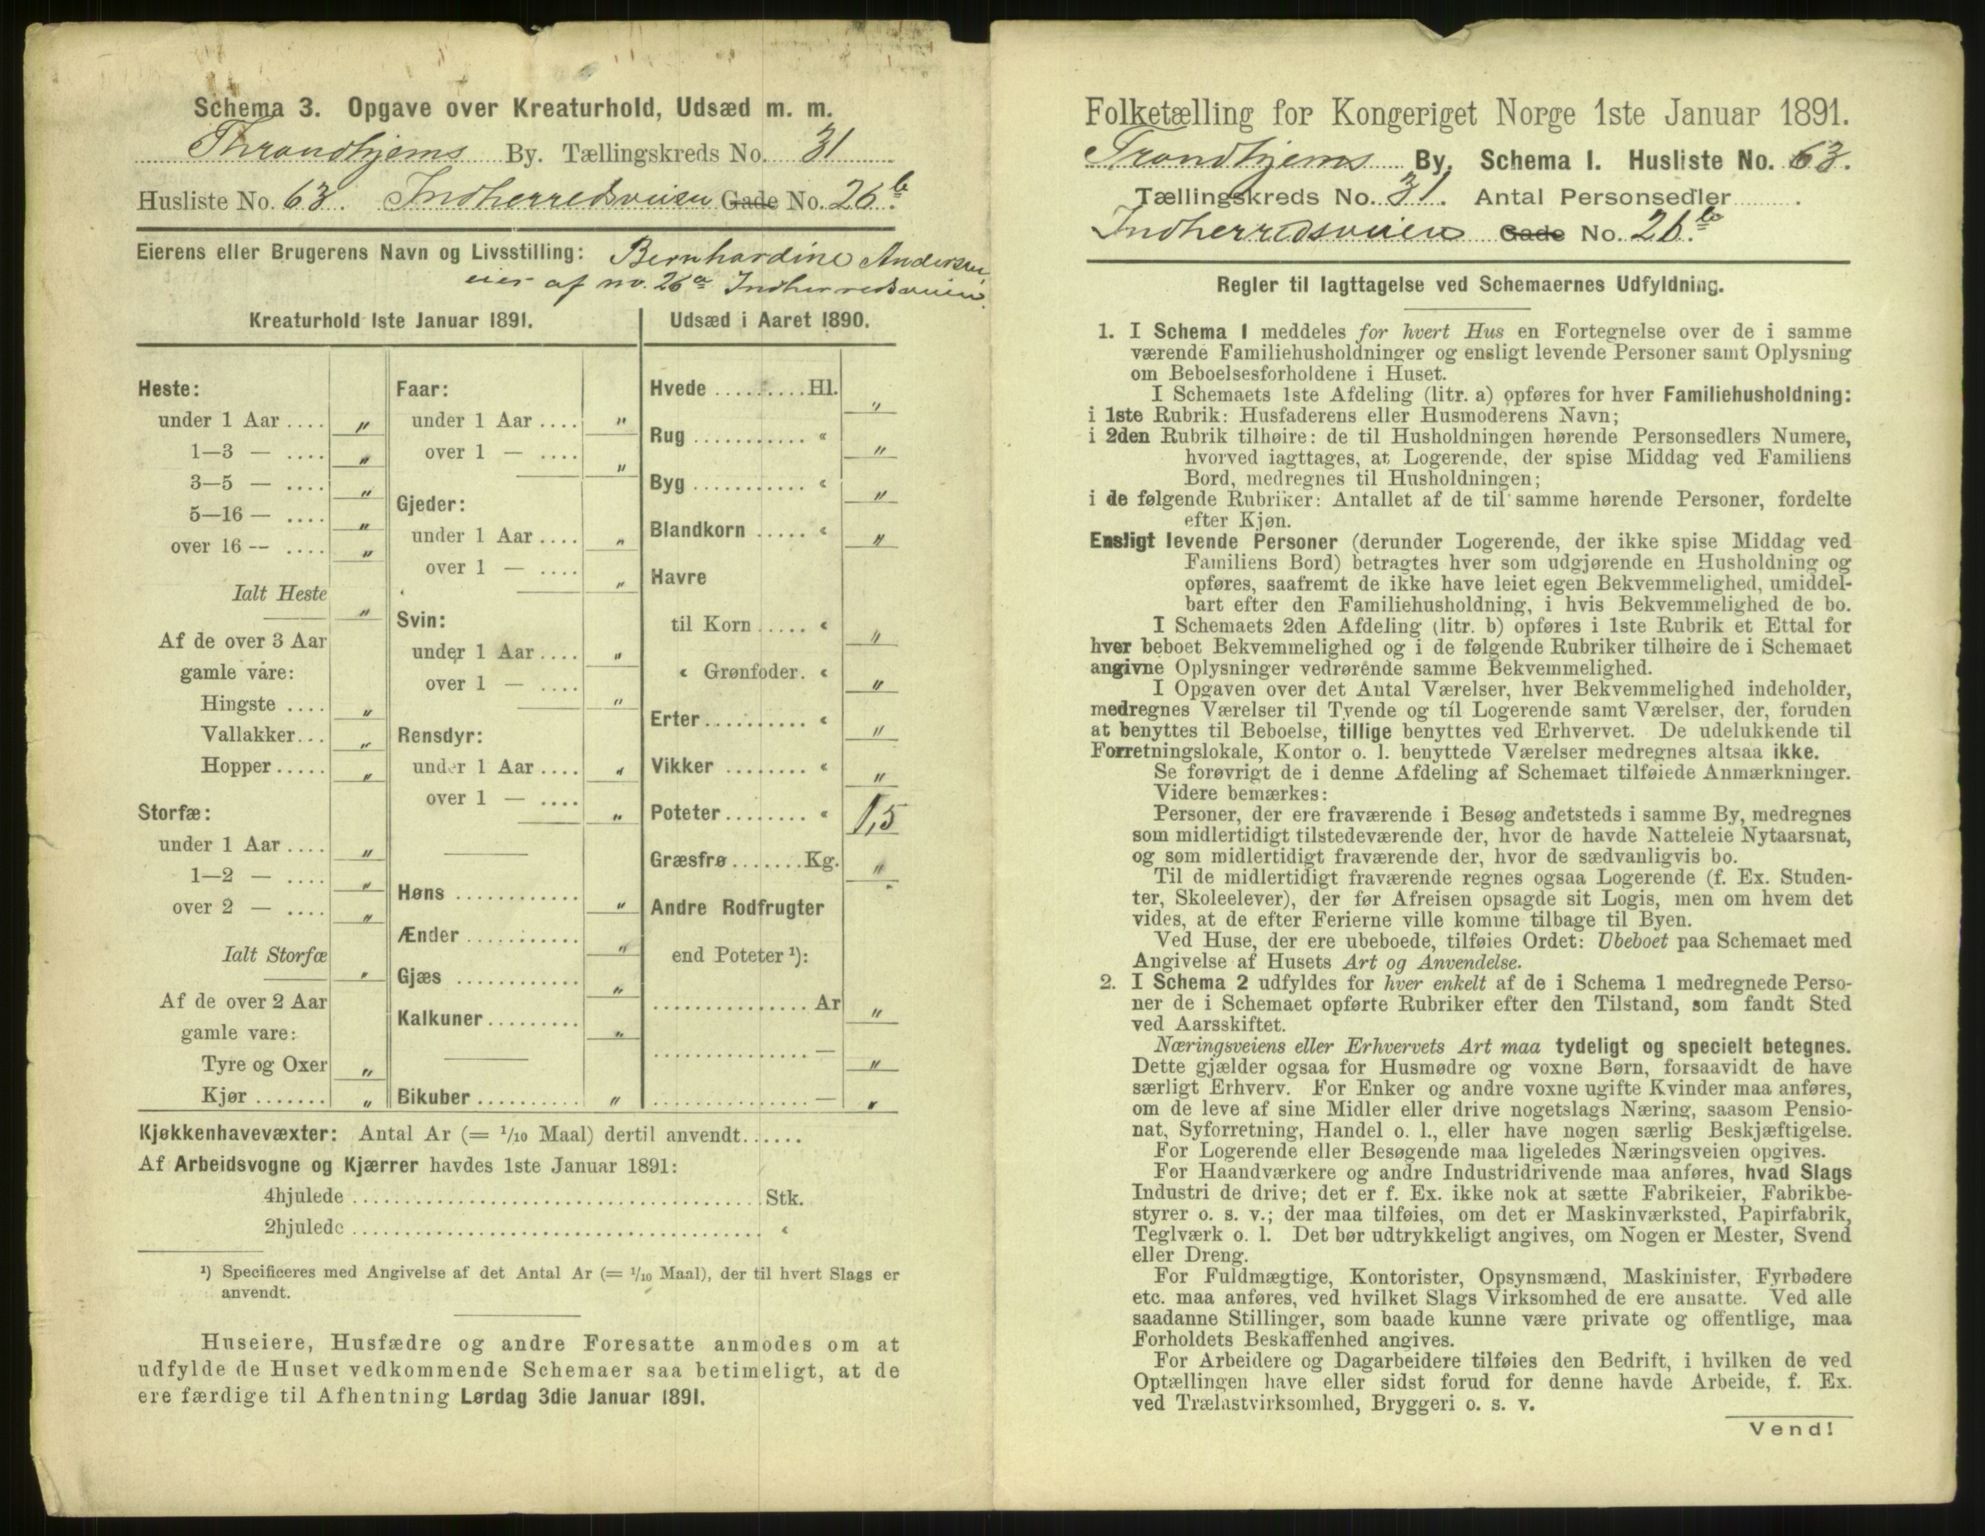 Schema 3. Opgave over Kreaturhold, Udsæd m. m.
Throndhjems By. Tællingskreds No. 31
Husliste No. 63. Indherredsveien Gade No. 26b.
Eierens eller Brugerens Navn og Livsstilling: Bernhardine Andersen
eier af no. 26a Indherredsveien.
Kreaturhold 1ste Januar 1891. Udsæd i Aaret 1890.
Heste:
under 1 Aar .... "
1—3 — .... "
3—5 — .... "
5—16 — .... "
over 16 — .... "
Ialt Heste "
Af de over 3 Aar
gamle vare:
Hingste .... "
Vallakker... "
Hopper..... "
Storfæ:
under 1 Aar .... "
1—2 — .... "
over 2 — .... "
Ialt Storfæ "
Af de over 2 Aar
gamle vare:
Tyre og Oxer "
Kjør ....... "
Faar:
under 1 Aar .... "
over 1 — .... "
Gjeder:
under 1 Aar .... "
over 1 — .... "
Svin:
under 1 Aar .... "
over 1 — .... "
Rensdyr:
under 1 Aar .... "
over 1 — .... "
Høns ........... "
Ænder .......... "
Gjæs ........... "
Kalkuner........ "
Bikuber ......... "
Hvede ........ Hl. "
Rug .......... « "
Byg .......... « "
Blandkorn ..... « "
Havre
til Korn ..... « "
« Grønfoder. « "
Erter.......... « "
Vikker ........ « "
Poteter........ « 1,5
Græsfrø ....... Kg. "
Andre Rodfrugter
end Poteter ¹):
.............. Ar "
.............. — "
.............. — "
Kjøkkenhavevæxter: Antal Ar (= 1/10 Maal) dertil anvendt......
Af Arbeidsvogne og Kjærrer havdes 1ste Januar 1891:
4hjulede .................................... Stk.
2hjulede .................................... «
¹) Specificeres med Angivelse af det Antal Ar (= 1/10 Maal), der til hvert Slags er
anvendt.
Huseiere, Husfædre og andre Foresatte anmodes om at
udfylde de Huset vedkommende Schemaer saa betimeligt, at de
ere færdige til Afhentning Lørdag 3die Januar 1891.
Folketælling for Kongeriget Norge 1ste Januar 1891.
Trondhjems By. Schema I. Husliste No. 63.
Tællingskreds No. 31. Antal Personsedler ........
Indherredsveien Gade No. 26b.
Regler til Iagttagelse ved Schemaernes Udfyldning.
1. I Schema 1 meddeles for hvert Hus en Fortegnelse over de i samme
værende Familiehusholdninger og ensligt levende Personer samt Oplysning
om Beboelsesforholdene i Huset.
I Schemaets 1ste Afdeling (litr. a) opføres for hver Familiehusholdning:
i 1ste Rubrik: Husfaderens eller Husmoderens Navn;
i 2den Rubrik tilhøire: de til Husholdningen hørende Personsedlers Numere,
hvorved iagttages, at Logerende, der spise Middag ved Familiens
Bord, medregnes til Husholdningen;
i de følgende Rubriker: Antallet af de til samme hørende Personer, fordelte
efter Kjøn.
Ensligt levende Personer (derunder Logerende, der ikke spise Middag ved
Familiens Bord) betragtes hver som udgjørende en Husholdning og
opføres, saafremt de ikke have leiet egen Bekvemmelighed, umiddel-
bart efter den Familiehusholdning, i hvis Bekvemmelighed de bo.
I Schemaets 2den Afdeling (litr. b) opføres i 1ste Rubrik et Ettal for
hver beboet Bekvemmelighed og i de følgende Rubriker tilhøire de i Schemaet
angivne Oplysninger vedrørende samme Bekvemmelighed.
I Opgaven over det Antal Værelser, hver Bekvemmelighed indeholder,
medregnes Værelser til Tyende og til Logerende samt Værelser, der, foruden
at benyttes til Beboelse, tillige benyttes ved Erhvervet. De udelukkende til
Forretningslokale, Kontor o. l. benyttede Værelser medregnes altsaa ikke.
Se forøvrigt de i denne Afdeling af Schemaet tilføiede Anmærkninger.
Videre bemærkes:
Personer, der ere fraværende i Besøg andetsteds i samme By, medregnes
som midlertidigt tilstedeværende der, hvor de havde Natteleie Nytaarsnat,
og som midlertidigt fraværende der, hvor de sædvanligvis bo.
Til de midlertidigt fraværende regnes ogsaa Logerende (f. Ex. Studen-
ter, Skoleelever), der før Afreisen opsagde sit Logis, men om hvem det
vides, at de efter Ferierne ville komme tilbage til Byen.
Ved Huse, der ere ubeboede, tilføies Ordet: Ubeboet paa Schemaet med
Angivelse af Husets Art og Anvendelse.
2. I Schema 2 udfyldes for hver enkelt af de i Schema 1 medregnede Perso-
ner de i Schemaet opførte Rubriker efter den Tilstand, som fandt Sted
ved Aarsskiftet.
Næringsveiens eller Erhvervets Art maa tydeligt og specielt betegnes.
Dette gjælder ogsaa for Husmødre og voxne Børn, forsaavidt de have
særligt Erhverv. For Enker og andre voxne ugifte Kvinder maa anføres,
om de leve af sine Midler eller drive nogetslags Næring, saasom Pensio-
nat, Syforretning, Handel o. l., eller have nogen særlig Beskjæftigelse.
For Logerende eller Besøgende maa ligeledes Næringsveien opgives.
For Haandværkere og andre Industridrivende maa anføres, hvad Slags
Industri de drive; det er f. Ex. ikke nok at sætte Fabrikeier, Fabrikbe-
styrer o. s. v.; der maa tilføies, om det er Maskinværksted, Papirfabrik,
Teglværk o. l. Det bør udtrykkeligt angives, om Nogen er Mester, Svend
eller Dreng.
For Fuldmægtige, Kontorister, Opsynsmænd, Maskinister, Fyrbødere
etc. maa anføres, ved hvilket Slags Virksomhed de ere ansatte. Ved alle
saadanne Stillinger, som baade kunne være private og offentlige, maa
Forholdets Beskaffenhed angives.
For Arbeidere og Dagarbeidere tilføies den Bedrift, i hvilken de ved
Optællingen have eller sidst forud for denne havde Arbeide, f. Ex.
ved Trælastvirksomhed, Bryggeri o. s. v.
Vend!